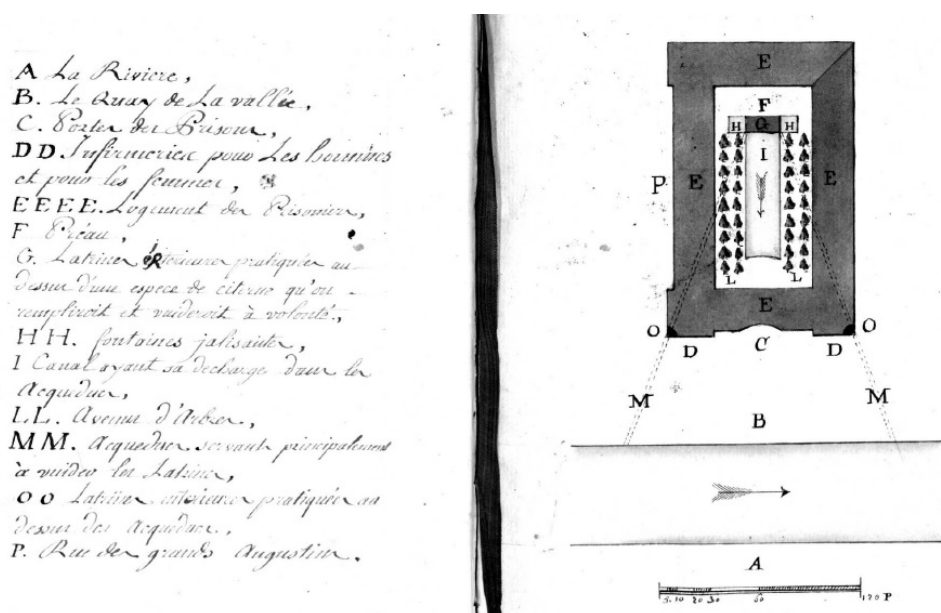 A La Riviere,
B. Le Quay de La vallée,
C. Portes des Prisons,
DD. Infirmeries pour Les hommes
et pour les femmes,
EEEE. Logement des Prisonier,
F Préau,
G. Latrines extérieures pratiquées au-
dessus d'une espece de citerne qu'on -
rempliroit et vuideroit à volonté,
HH. fontaines jalisantes,
I Canal ayant sa decharge dans les
Acqueducs,
LL. Avenue d'Arbres,
MM. Acqueducs servants principalement
à vuider les Latrines,
OO Latrines intérieures pratiquées au
dessus des Acqueducs,
P. Rue des grands Augustins.
E
F
H G H
I
P E E
L L
E
O O
D C D
M M
B
A
5.10 20 30 60 120 P